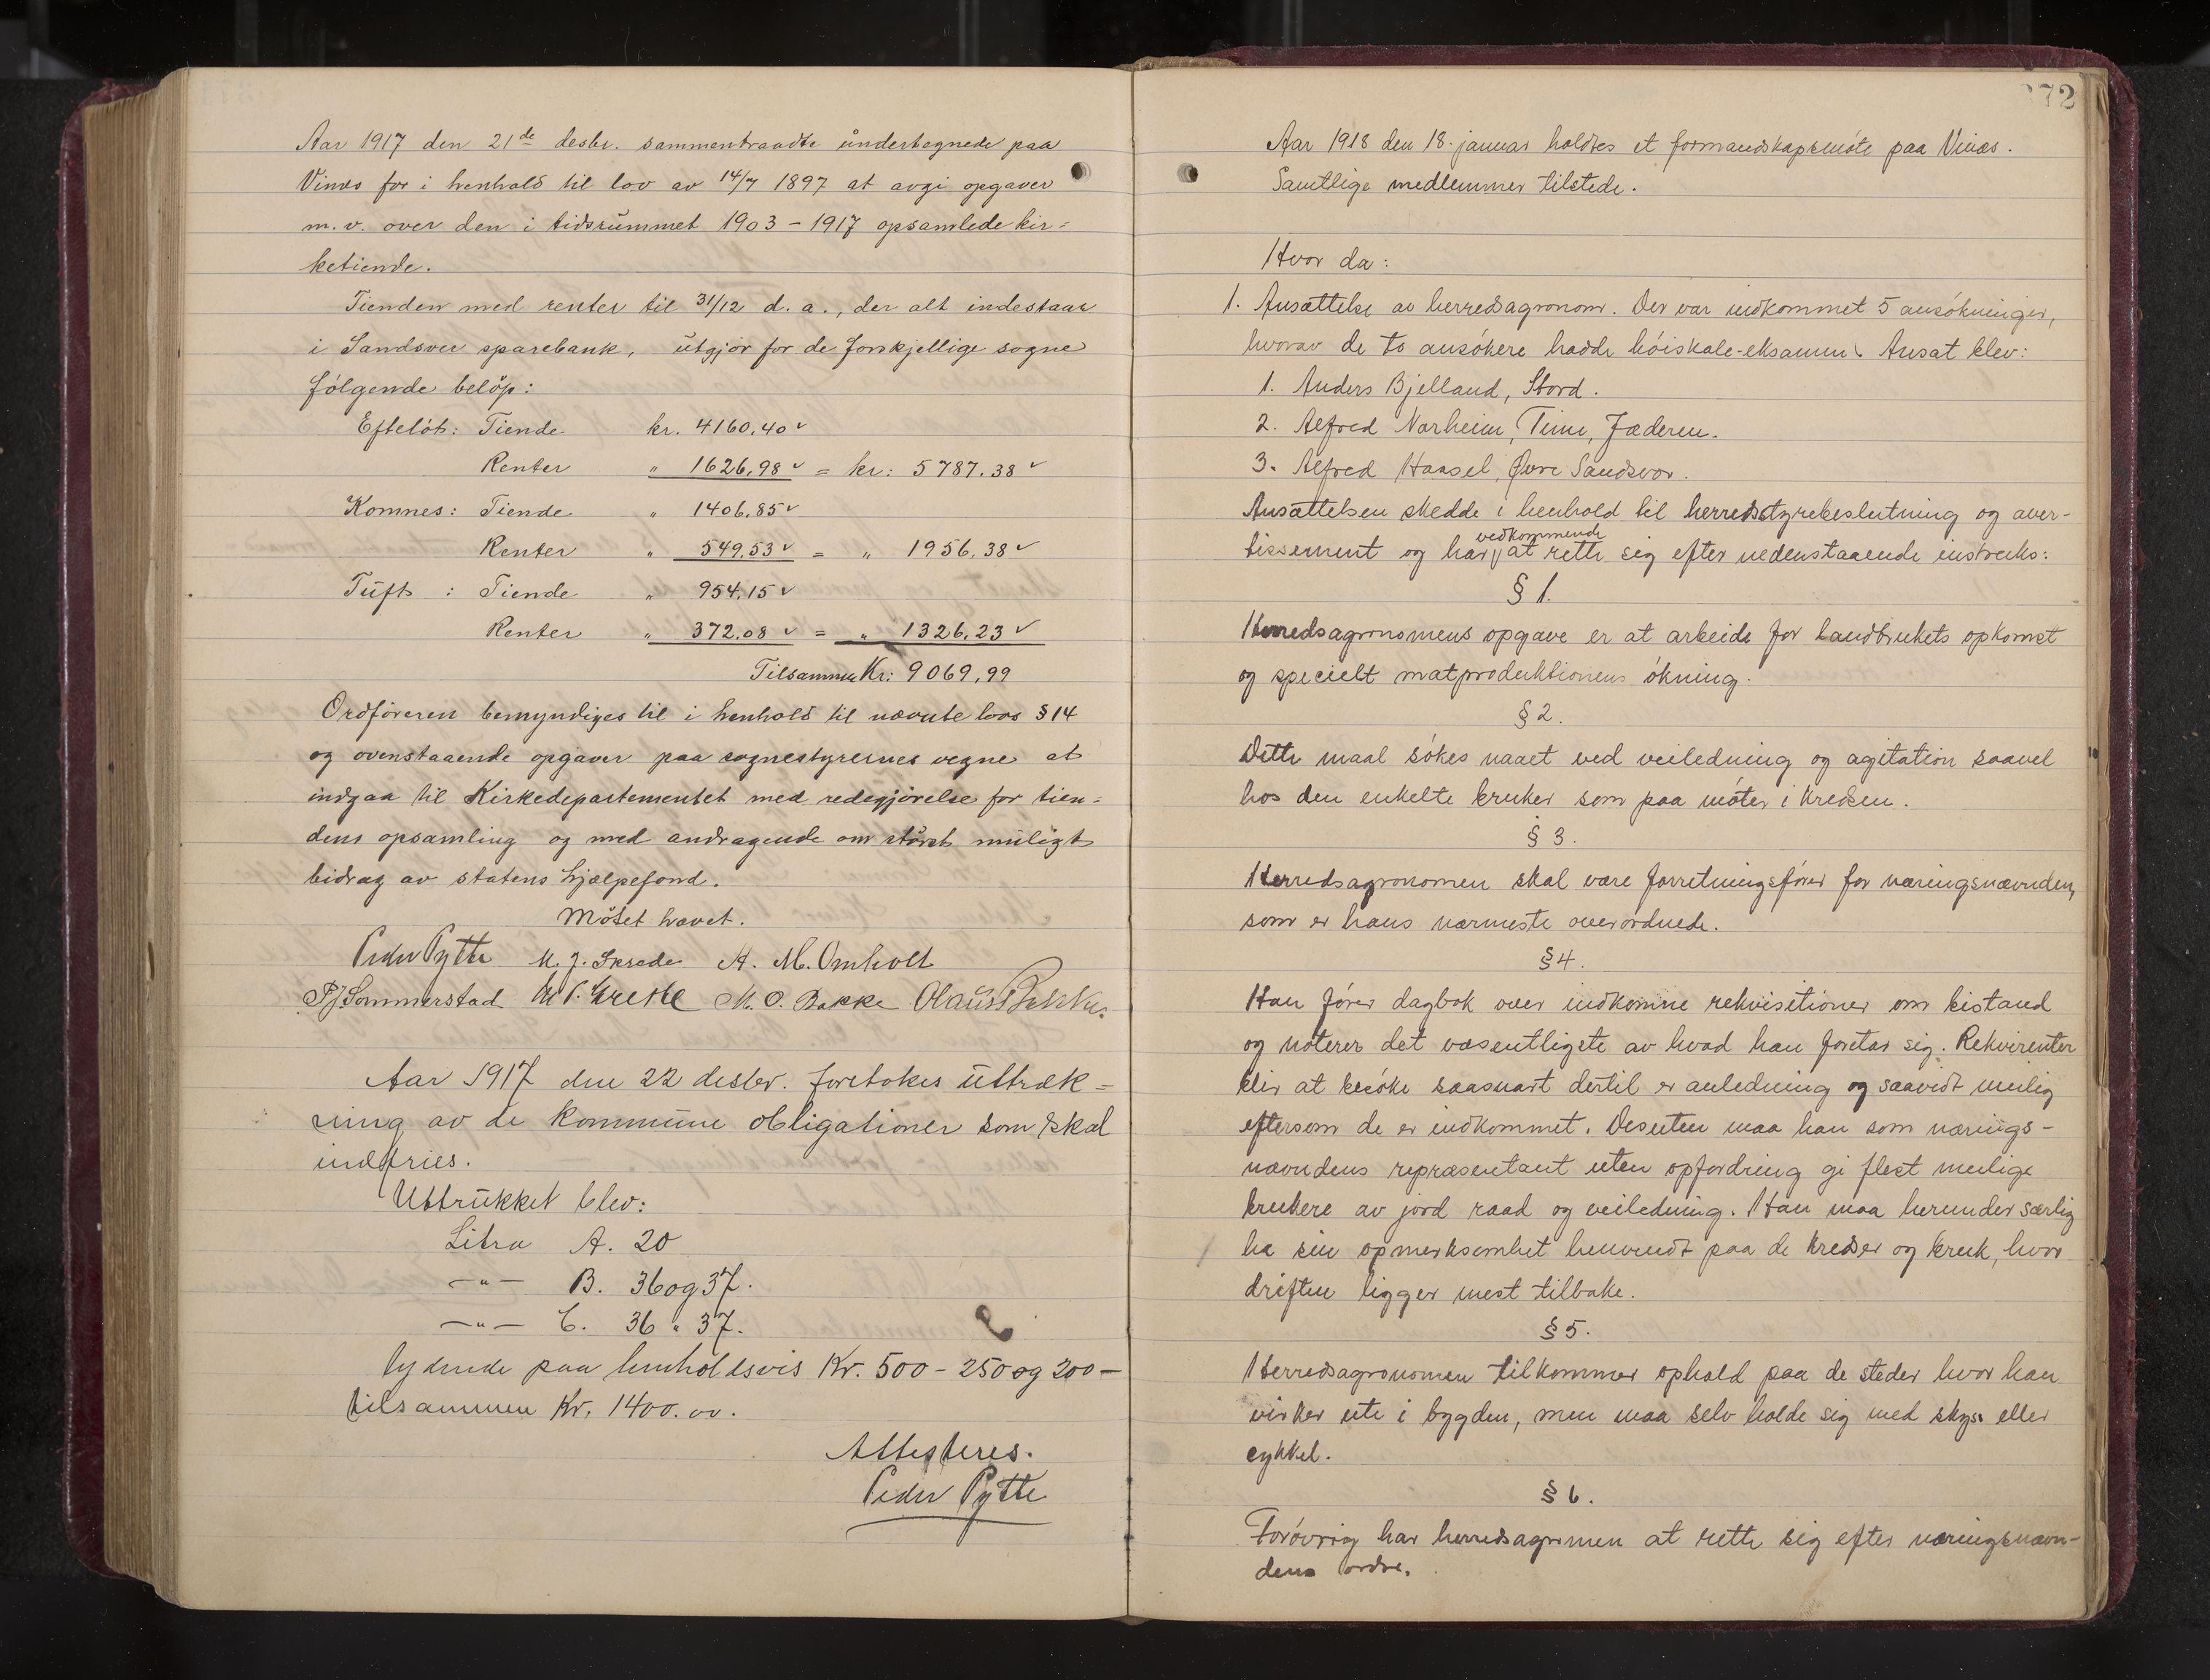 Aar 1917 den 21de desbr. sammentraadte undertegnede paa
Vinæs for i henhold til lov av 14/7 1897 at avgi opgaver
m. v. over den i tidsrummet 1903 - 1917 opsamlede kir=
ketiende.
Tienden med renter til 31/12 d. a., der alt indestaar
i Sandsver sparebank, utgjør for de forskjellige sogne
følgende beløp:
Efteløt: Tiende kr. 4160,40 ✓
Renter " 1626,98 ✓ = kr: 5787.38 ✓
Komnes: Tiende " 1406,85 ✓
Renter " 549,53 ✓ = " 1956,38 ✓
Tuft : Tiende " 954,15 ✓
Renter " 372,08 ✓ = " 1326,23 ✓
Tilsammen Kr: 9069,99
Ordføreren bemyndiges til i henhold til nævnte lovs § 14
og ovenstaaende opgaver paa sognestyrernes vegne at
indgaa til Kirkedepartementet med redegjørelse for tien=
dens opsamling og med andragende om størst muligt
bidrag av statens hjælpefond.
Møtet hævet.
Peder Pytte M. J. Skrede A. M. Omholt
P J Sommerstad M. O. Bakke
Aar 1917 den 22 desbr. foretokes uttræk=
ning av de kommune obligationer som skal
indfries.
Uttrukket blev:
Litra A. 20
-"- B. 36 og 37.
-"- C. 36 " 37.
lydende paa henholdsvis Kr. 500 - 250 og 200 -
tilsammen Kr. 1400.00.
Attesteres.
Peder Pytte
372
Aar 1918 den 18. januar holdtes et formandskapsmøte paa Vinæs.
Samtlige medlemmer tilstede.
Hvor da:
1. Ansættelse av herredsagronom. Der var indkommet 5 ansøkninger,
hvorav de to ansøkere hadde høiskole-eksamen. Ansat blev:
1. Anders Bjelland, Stord.
2. Alfred Narheim, Time, Jæderen.
3. Alfred Haasel, Øvre Sandsvær.
Ansættelsen skedde i henhold til herredsstyrebeslutning og aver-
tissement og har vedkommende at rette sig efter nedenstaaende instruks:
§ 1.
Herredsagronomens opgave er at arbeide for landbrukets opkomst
og specielt matproduktionens økning.
§ 2.
Dette maal søkes naaet ved veiledning og agitation saavel
hos den enkelte bruker som paa møter i kredsen.
§ 3.
Herredsagronomen skal være forretningsfører for næringsnævnden,
som er hans nærmeste overordnede.
§ 4.
Han fører dagbok over indkomne rekvisitioner om bistand
og noterer det væsentligste av hvad han foretar sig. Rekvirenter
blir at besøke saasnart dertil er anledning og saavidt mulig
eftersom de er indkommet. Desuten maa han som nærings-
nævndens repræsentant uten opfordring gi flest mulige
brukere av jord raad og veiledning. Han maa herunder særlig
ha sin opmerksomhet henvendt paa de kredser og bruk, hvor
driften ligger mest tilbake.
§ 5.
Herredsagronomen tilkommer ophold paa de steder hvor han
virker ute i bygden, men maa selv holde sig med skyss eller
cykkel.
§ 6.
Forøvrig har herredsagronomen at rette sig efter næringsnævn-
dens ordre.